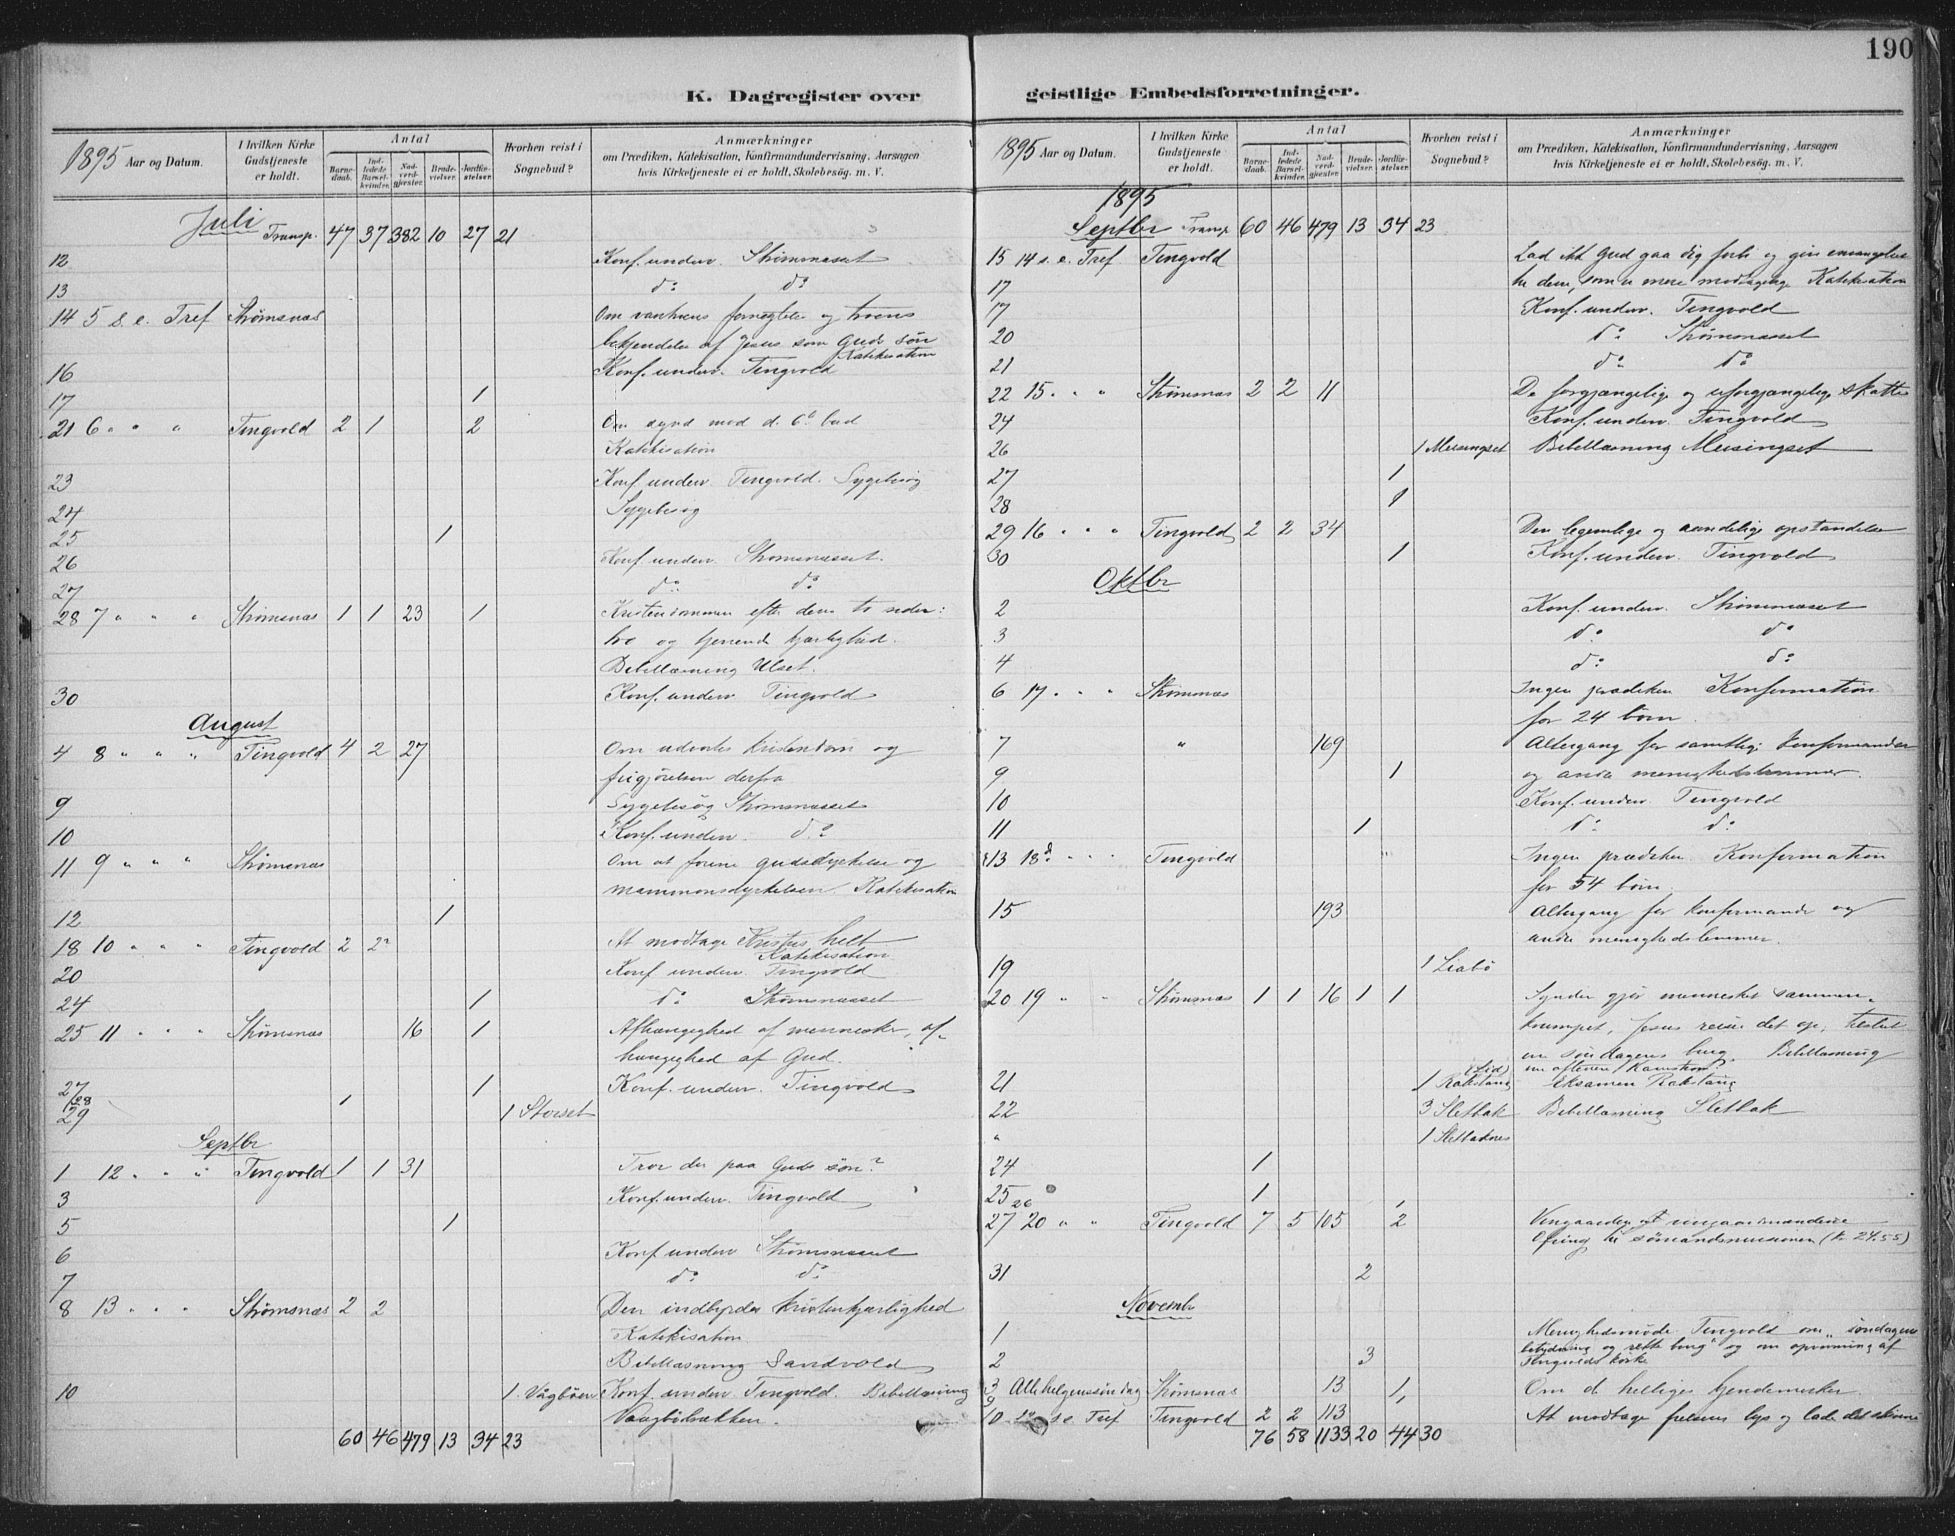 190
K. Dagregister over
1895 Aar og Datum.
I hvilken Kirke Gudstjeneste er holdt.
Antal
Barnedaab.
Indledede Barselkvinder.
Nadverdgjester.
Brudevielser.
Jordfæstelser.
Hvorhen reist i Sognebud?
Anmærkninger
om Prædiken, Katekisation, Konfirmandundervisning, Aarsagen
hvis Kirketjeneste ei er holdt, Skolebesög. m. V.
Juli Transp. 47 37 382 10 27 21
12 Konf. underv. Strømsnæset
13 do do
14 5 s. e. Tref Strømsnæs Om vantroens fornegtelse og troens
bekjendelse af Jesus som Guds søn
Katekisation
16 Konf. underv. Tingvold
17 1
21 6 " " " Tingvold 2 1 2 Om synd mod d. 6te bud
Katekisation
23 Konf. underv. Tingvold. Sygebesøg
24 Sygebesøg
25 1
26 Konf. underv. Strømsnæset.
27 do do
28 7 " " " Strømsnæs 1 1 23 1 Kristendommen efter dens to sider:
tro og tjenende kjærlighed.
Bibellæsning Ulset.
30 Konf. underv. Tingvold
August
4 8 " " " Tingvold 4 2 27 Om udvortes kristendom og
frigjørelsen derfra
9 Sygebesøg Strømsnæset
10 Konf. underv. do
11 9 " " " Strømsnæs Om at forene gudsdyrkelse og
mammonsdyrkelsen. Katekisation
12 1
18 10 " " " Tingvold 2 2 At modtage Kristus helt
Katekisation
20 Konf. underv. Tingvold
24 1 do Strømsnæset
25 11 " " " Strømsnæs 16 1 Afhængighed af mennesker, af-
hængighed af Gud.
27 1 Konf. underv. Tingvold
28 1
29 1 Storset
Septbr
1 12 " " " Tingvold 1 1 31 Tror du paa Guds søn?
3 Konf. underv. Tingvold
5 1
6 Konf. underv. Strømsnæset
7 do do
8 13 " " " Strømsnæs 2 2 Den indbyrdes kristenkjærlighed
Katekisation
Bibellæsning Sandvold
10 1 Vågbøen Konf. underv. Tingvold. Bibellæsning
Vaagbøbakken.
60 46 479 13 34 23
geistlige Embedsforretninger.
1895 Aar og Datum.
I hvilken Kirke Gudstjeneste er holdt.
Antal
Barnedaab.
Indledede Barselkvinder.
Nadverdgjester.
Brudevielser.
Jordfæstelser.
Hvorhen reist i Sognebud?
Anmærkninger
om Prædiken, Katekisation, Konfirmandundervisning, Aarsagen
hvis Kirketjeneste ei er holdt, Skolebesög. m. V.
1895
Septbr Transp 60 46 479 13 34 23
15 14 s. e. Tref Tingvold Lad ikke Gud gaa dig forbi og give evangeliet
17 til dem, som er mere modtagelige Katekisation
17 Konf. underv. Tingvold
20 do Strømsnæset
21 do do
22 15 " " Strømsnæs 2 2 11 De forgjængelige og uforgjængelige skatte
24 Konf. underv. Tingvold
26 1 Meisingset Bibellæsning Meisingset
27 1
28 1
29 16 " " " Tingvold 2 2 34 Den legemlige og aandelige opstandelse
30 1 Konf. underv. Tingvold
Oktbr
2 Konf. underv. Strømsnæset
3 do do
4 do do
6 17 " " " Strømsnæs Ingen prædiken Konfirmation
for 24 børn.
7 " 169 Altergang for samtlige konfirmander
9 1 og andre menighedslemmer.
10 Konf. underv. Tingvold
11 1 do do
13 18de " " " Tingvold Ingen prædiken. Konfirmation
for 54 børn.
15 193 Altergang for konfirmander og
andre menighedslemmer.
19 1 Liabø
20 19 " " Strømsnæs 1 1 16 1 1 Synden gjør mennesket sammen-
krumpet, Jesus reiser det op,
om søndagens brug. Bibellæsning
om aftenen
21 1 Rakstang Eksamen Rakstang
22 3 Sletbak Bibellæsning Sletbak
" 1 Sletbaknes
24 1
25 1
26 1
27 20 " " Tingvold 7 5 105 2 Vingaarden og vingaardsmændene
Ofring til sømandsmissionen (kr. 24.55)
31 2
Novembr
1 Menighedsmøde Tingvold om "søndagens
betydning og rette brug" og om opvarmning af
2 3 Tingvolds kirke
3 Allehelgenssøndag Strømsnæs 13 1 Om de helliges kjendemerker.
9 1
10 s. e. Tref Tingvold 2 2 113 At modtage frelsens lys og lade det skinne
76 58 1133 20 44 30